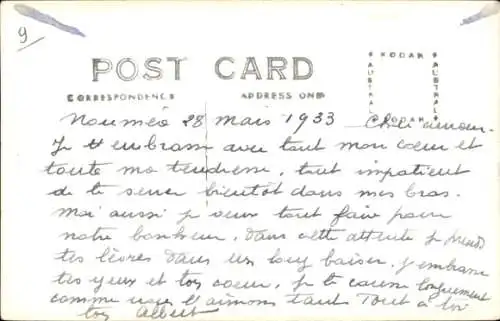 9
POST CARD
CORRESPONDENCE ADDRESS ONLY
KODAK
AUSTRAL
AUSTRAL
KODAK
Nouméa 28 mars 1933 Chéri amour
Je t'embrasse avec tout mon coeur et
toute ma tendresse, tout impatient
de te serrer bientôt dans mes bras.
Moi aussi je veux tout faire pour
notre bonheur. Dans cette attente je prends
tes lèvres dans un long baiser. j'embrasse
tes yeux et ton coeur, je te longuement
comme nous aimons tant Tout à toi
ton Albert